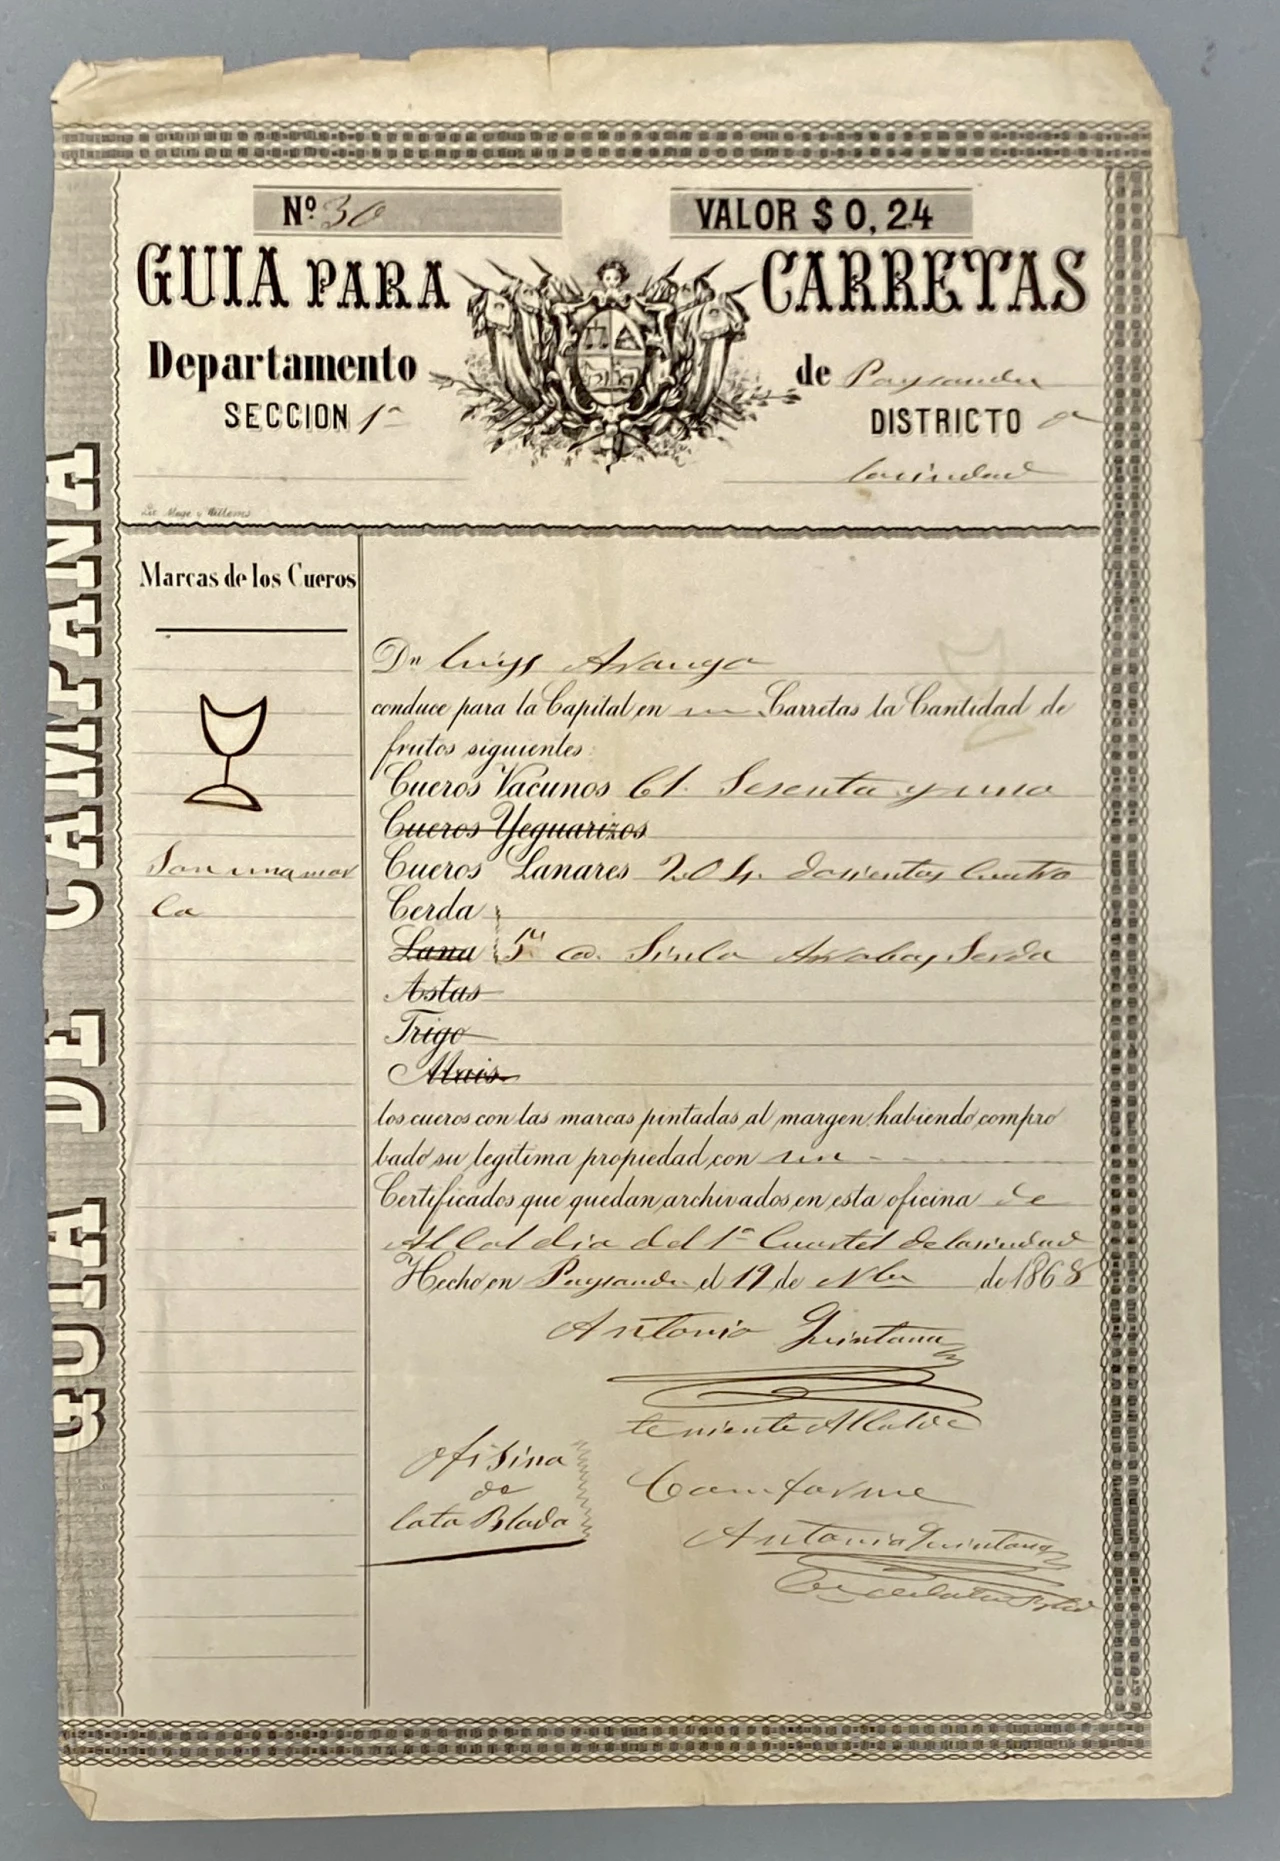 Nº 30
VALOR $ 0,24
GUIA PARA CARRETAS
Departamento de Paysandu
SECCION 1ª DISTRICTO
Lit. Mege y Willems
GUIA DE CAMPAÑA
Marcas de los Cueros
Son una mar
ca
Dn Luiys
conduce para la Capital en Carretas la Cantidad de
frutos siguientes:
Cueros Vacunos 61. Sesenta y uno
Cueros Yeguarizos
Cueros Lanares 204. dosientos Cuatro
Cerda
Lana 5 @. Sinco Arrobas Serda
Astas
Trigo
Mais
los cueros con las marcas pintadas al margen habiendo compro
bado su legitima propiedad con
Certificados que quedan archivados en esta oficina de
Allcaldia del 1º Cuartel de lasiudad
Hecho en Paysandu el 19 de Nbre de 1868
Antonio Quintana
teniente Allcalde
Ofisina
de
lata Blada
Comforme
Antonio Quintana